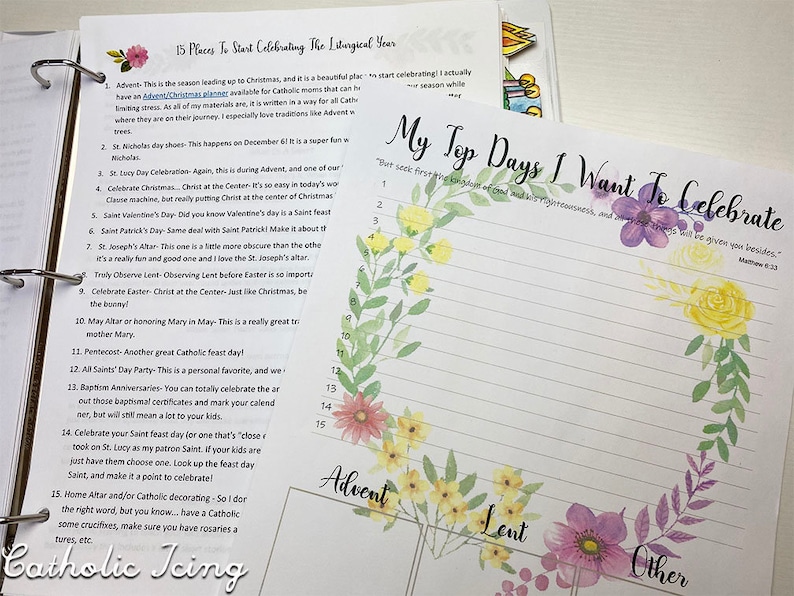 15 Places To Start Celebrating The Liturgical Year
1. Advent- This is the season leading up to Christmas, and it is a beautiful place to start celebrating! I actually
have an Advent/Christmas planner available for Catholic moms that can he
our season while
limiting stress. As all of my materials are, it is written in a way for all Cath
tter
where they are on their journey. I especially love traditions like Advent w
trees.
2. St. Nicholas day shoes- This happens on December 6! It is a super fun w
Nicholas.
3. St. Lucy Day Celebration- Again, this is during Advent, and one of our
4. Celebrate Christmas... Christ at the Center- It's so easy in today's wo
Clause machine, but really putting Christ at the center of Christmas
5. Saint Valentine's Day- Did you know Valentine's day is a Saint feast
6. Saint Patrick's Day- Same deal with Saint Patrick! Make it about th
7. St. Joseph's Altar- This one is a little more obscure than the othe
it's a really fun and good one and I love the St. Joseph's altar.
8. Truly Observe Lent- Observing Lent before Easter is so importa
9. Celebrate Easter- Christ at the Center- Just like Christmas, be
the bunny!
10. May Altar or honoring Mary in May- This is a really great tra
mother Mary.
11. Pentecost- Another great Catholic feast day!
12. All Saints' Day Party- This is a personal favorite, and we
13. Baptism Anniversaries- You can totally celebrate the an
out those baptismal certificates and mark your calend
ner, but will still mean a lot to your kids.
14. Celebrate your Saint feast day (or one that's "close e
took on St. Lucy as my patron Saint. If your kids are
just have them choose one. Look up the feast day
Saint, and make it a point to celebrate!
15. Home Altar and/or Catholic decorating - So I don
the right word, but you know... have a Catholic
some crucifixes, make sure you have rosaries a
tures, etc.
My Top Days I Want To Celebrate
"But seek first the kingdom of God and his righteousness, and all these things will be given you besides."
Matthew 6:33
1
2
3
4
5
6
7
8
9
10
11
12
13
14
15
Advent
Lent
Other
Catholic Icing